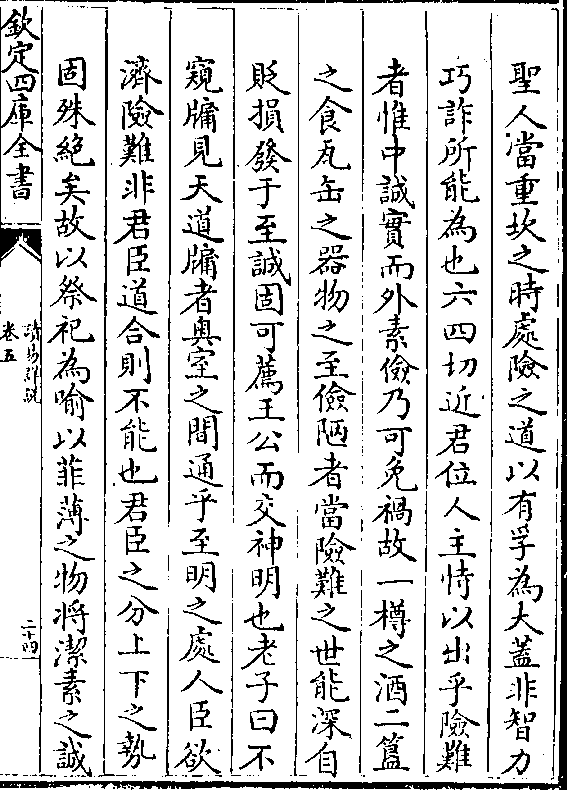 聖人當重坎之時處險之道以有孚為大蓋非智力
巧詐所能為也六四切近君位人主恃以出乎險難
者惟中誠實而外素儉乃可免禍故一樽之酒二簋
之食瓦缶之器物之至儉陋者當險難之世能深自
貶損發于至誠固可薦王公而交神明也老子曰不
窺牖見天道牖者奥室之間通乎至明之處人臣欲
濟險難非君臣道合則不能也君臣之分上下之勢
固殊絶矣故以祭祀為喻以菲薄之物將潔素之誠
欽定四庫全書
讀易詳說
卷五
二十四